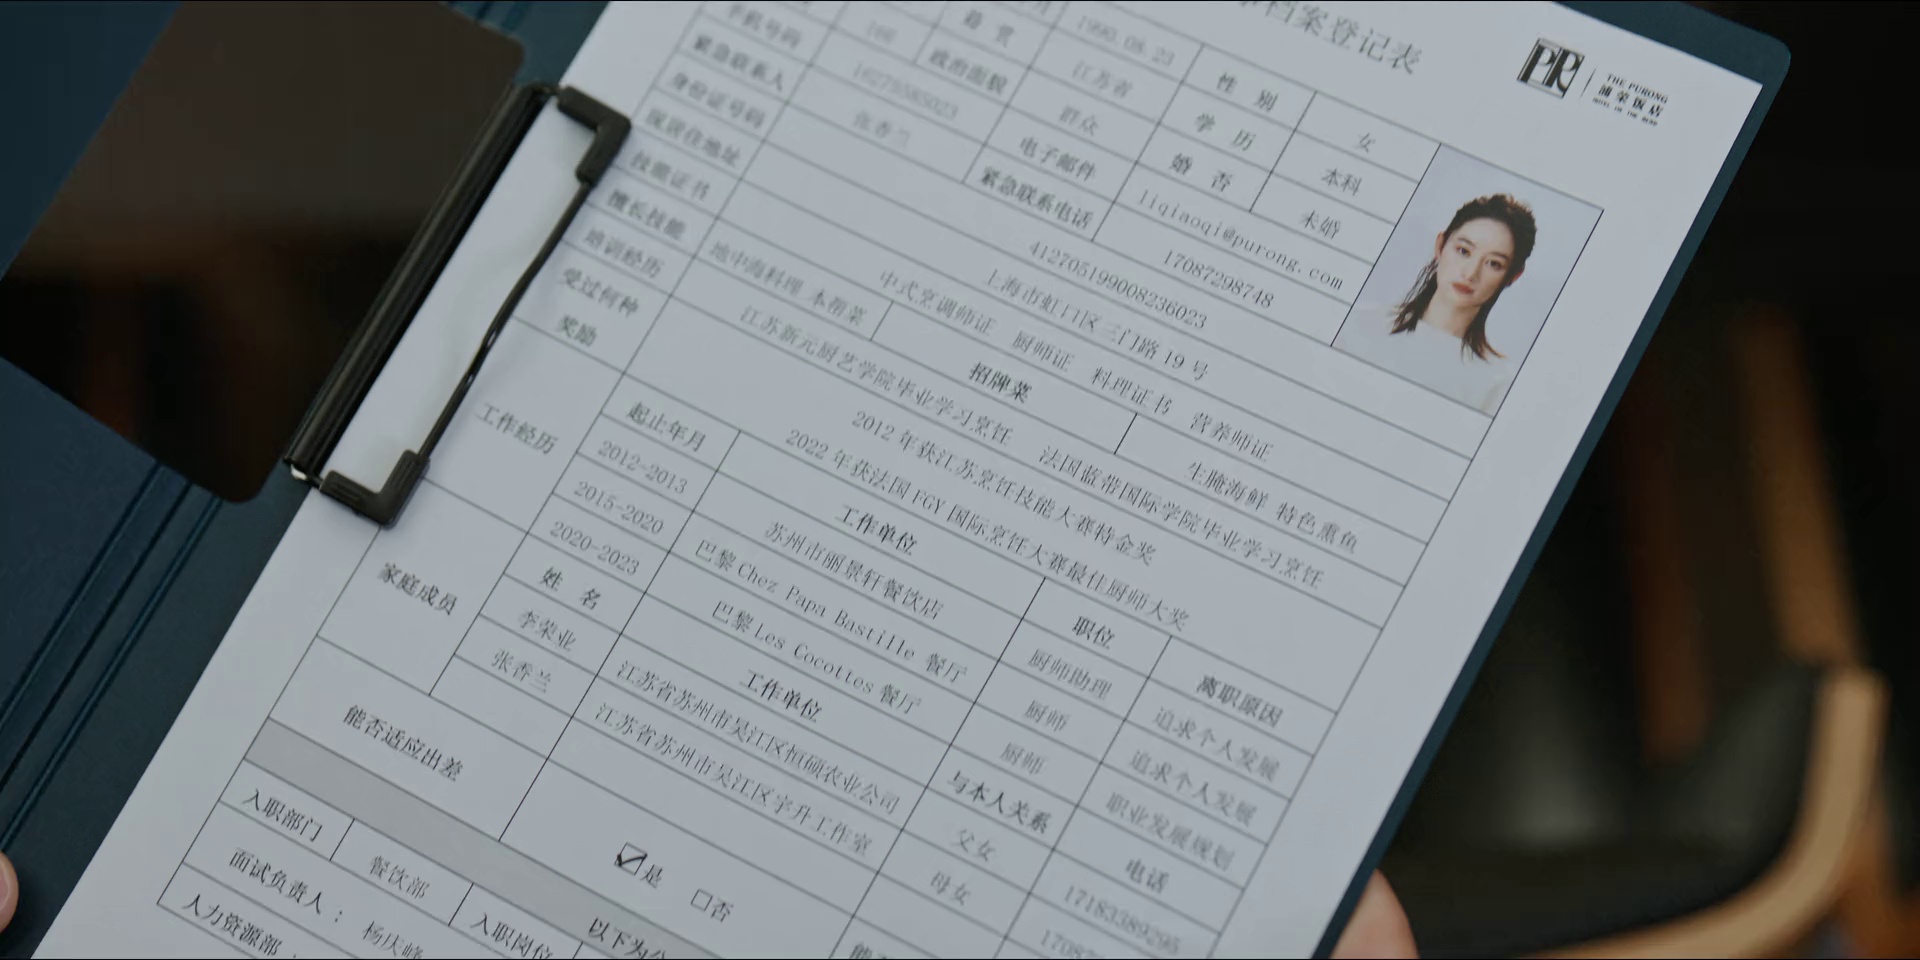 档案登记表
PR THE PURONG
浦荣饭店
手机号码 籍 贯 1990.08.23 性 别 女
紧急联系人 政治面貌 江苏省 学 历 本科
身份证号码 张香兰 群众 婚 否 未婚
现居住地址 电子邮件 liqiaoqi@purong.com
紧急联系电话 17087298748
412705199008236023
上海市虹口区三门路 19 号
技能证书 中式烹调师证 厨师证 料理证书 营养师证
擅长技能 地中海料理 本帮菜 招牌菜 生腌海鲜 特色熏鱼
培训经历 江苏新元厨艺学院毕业学习烹饪 法国蓝带国际学院毕业学习烹饪
受过何种
奖励
2012 年获江苏烹饪技能大赛特金奖
2022 年获法国 FGY 国际烹饪大赛最佳厨师大奖
工作经历 起止年月 工作单位 职位 离职原因
2012-2013 苏州市丽景轩餐饮店 厨师助理 追求个人发展
2015-2020 巴黎 Chez Papa Bastille 餐厅 厨师 追求个人发展
2020-2023 巴黎 Les Cocottes 餐厅 厨师 职业发展规划
家庭成员 姓 名 工作单位 与本人关系 电话
李荣业 江苏省苏州市吴江区恒硕农业公司 父女 17183389295
张香兰 江苏省苏州市吴江区宇升工作室 母女
能否适应出差 是 否
以下为
入职部门 餐饮部 入职岗位
面试负责人：杨庆峰
人力资源部